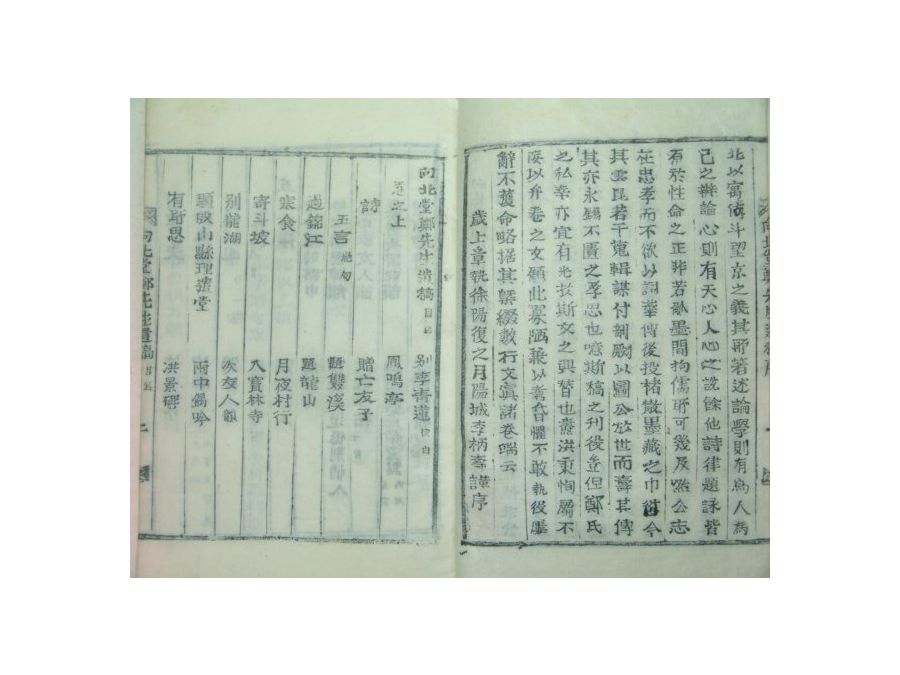 北以寓傅斗望京之義其所著述論學則有爲人爲
己之辯論心則有天心人心之說餘他詩律題詠皆
有於性命之正非若亂墨間拘儒所可幾及然公志
在忠孝而不欲以詞華傳後投楮散墨藏之巾衍今
其雲昆若干蒐輯謀付剞劂以圖公於世而壽其傳
其亦永錫不匱之孝思也噫斯稿之刊役豈但鄭氏
之私幸亦宜有光於斯文之興替也洪秉恂屬不
佞以弁卷之文顧此寡陋兼以耄昏懼不敢執役屢
辭不獲命略据其槩綴數行文寘諸卷端云
歲上章執徐陽復之月陽城李柄壽謹序
向北堂鄭先生遺稿目錄
卷之上
詩
五言絶句
過錦江
寒食
寄斗坡
別龍湖
題山縣理遣堂
有所思
別李靑蓮
鳳鳴亭
贈亡友子
題雙溪
題龍山
月夜村行
入寶林寺
次友人韻
雨中偶吟
洪景碑
向北堂鄭先生遺稿目錄 一